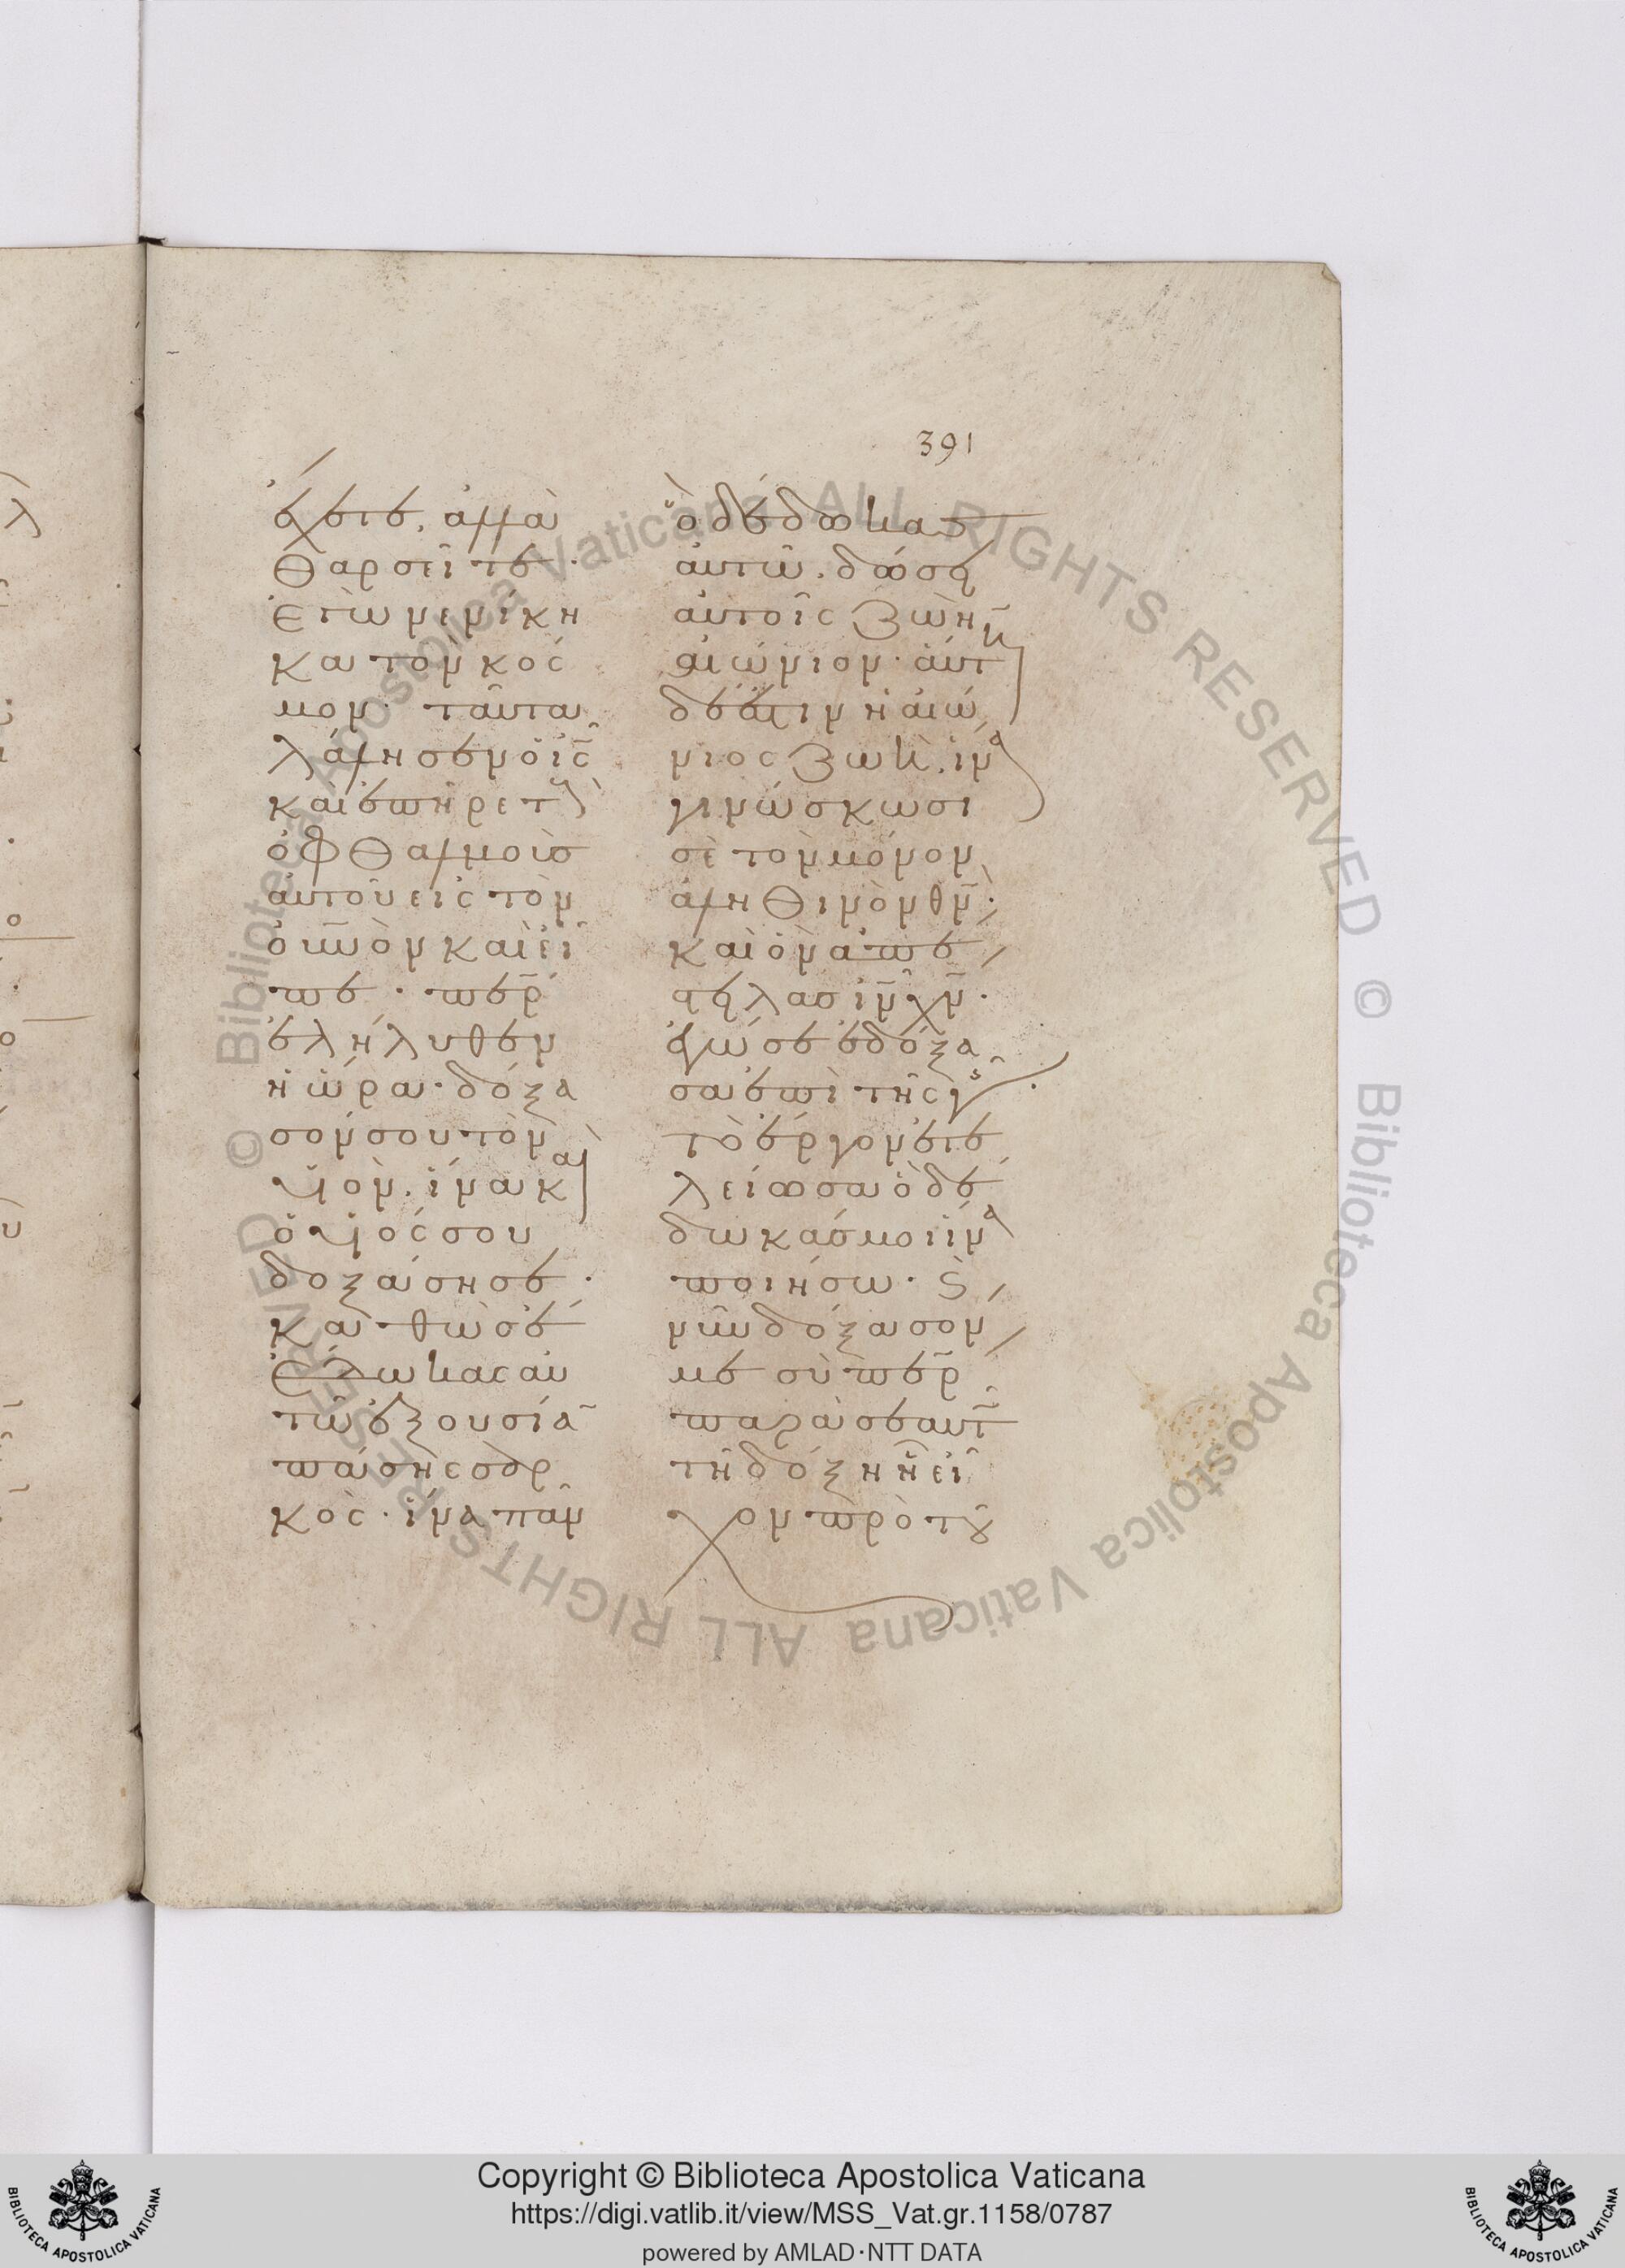 391
ἕξετε. ἀλλὰ
θαρσεῖτε·
ἐγὼ νενίκη
κα τὸν κόσ
μον· ταῦτα
λάλησεν ὁ ἰς̅
καὶ ἐπῆρε τοὺς
ὀφθαλμοὺς
αὐτοῦ εἰς τὸν
οὐ̅νὸν καὶ εἶ
πε· πε̅ρ
ἐλήλυθεν
ἡ ὥρα· δόξα
σόν σου τὸν
υἱόν. ἵνα καὶ
ὁ υἱός σου
δοξάσῃ σέ·
καθὼς ἔ
δωκας αὐ
τῷ ἐξουσία̅
πάσης σαρ
κός· ἵνα πᾶν
ὃ δέδωκας
αὐτῷ. δώσῃ
αὐτοῖς ζωὴν
αἰώνιον· αὕτη
δέ ἐστιν ἡ αἰώ
νιος ζωή. ἵνα
γινώσκωσι
σὲ τὸν μόνον
ἀληθινὸν θν̅·
καὶ ὃν ἀπέ
στειλας ιν̅ χν̅·
ἐγώ σε ἐδόξα
σα ἐπὶ τῆς γῆς·
τὸ ἔργον ἐτε
λείωσα ὃ δέ
δωκάς μοι ἵνα
ποιήσω· καὶ
νῦν δόξασον
με σὺ πε̅ρ
παρὰ σεαυτῷ
τῇ δόξῃ ᾗ εἶ
χον πρὸ τοῦ
Copyright © Biblioteca Apostolica Vaticana
https://digi.vatlib.it/view/MSS_Vat.gr.1158/0787
powered by AMLAD·NTT DATA
© Biblioteca Apostolica Vaticana ALL RIGHTS RESERVED
© Biblioteca Apostolica Vaticana ALL RIGHTS RESERVED
BIBLIOTECA APOSTOLICA VATICANA
BIBLIOTECA APOSTOLICA VATICANA